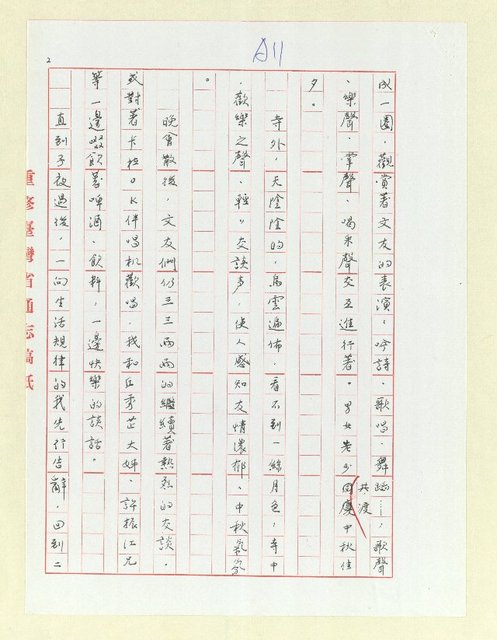 A11
2
成一圈，觀賞著文友的表演，吟詩、歌唱、舞蹈……，歌聲
、樂聲、掌聲、喝采聲交互進行著。男女老少共渡中秋佳
夕。
寺外，天陰陰的，烏雲遍佈，看不到一絲月色，寺中
，歡樂之聲、輕輕交談声，使人感知友情濃郁、中秋氣氛
。
晚會散後，文友們仍三三兩兩的繼續著熱烈的交談，
或對著卡拉OK伴唱机歡唱，我和丘秀芷大姊、許振江兄
等一邊啜飲著啤酒、飲料，一邊快樂的談話。
直到子夜過後，一向生活規律的我先行告辭，回到二
重修臺灣省通志稿紙